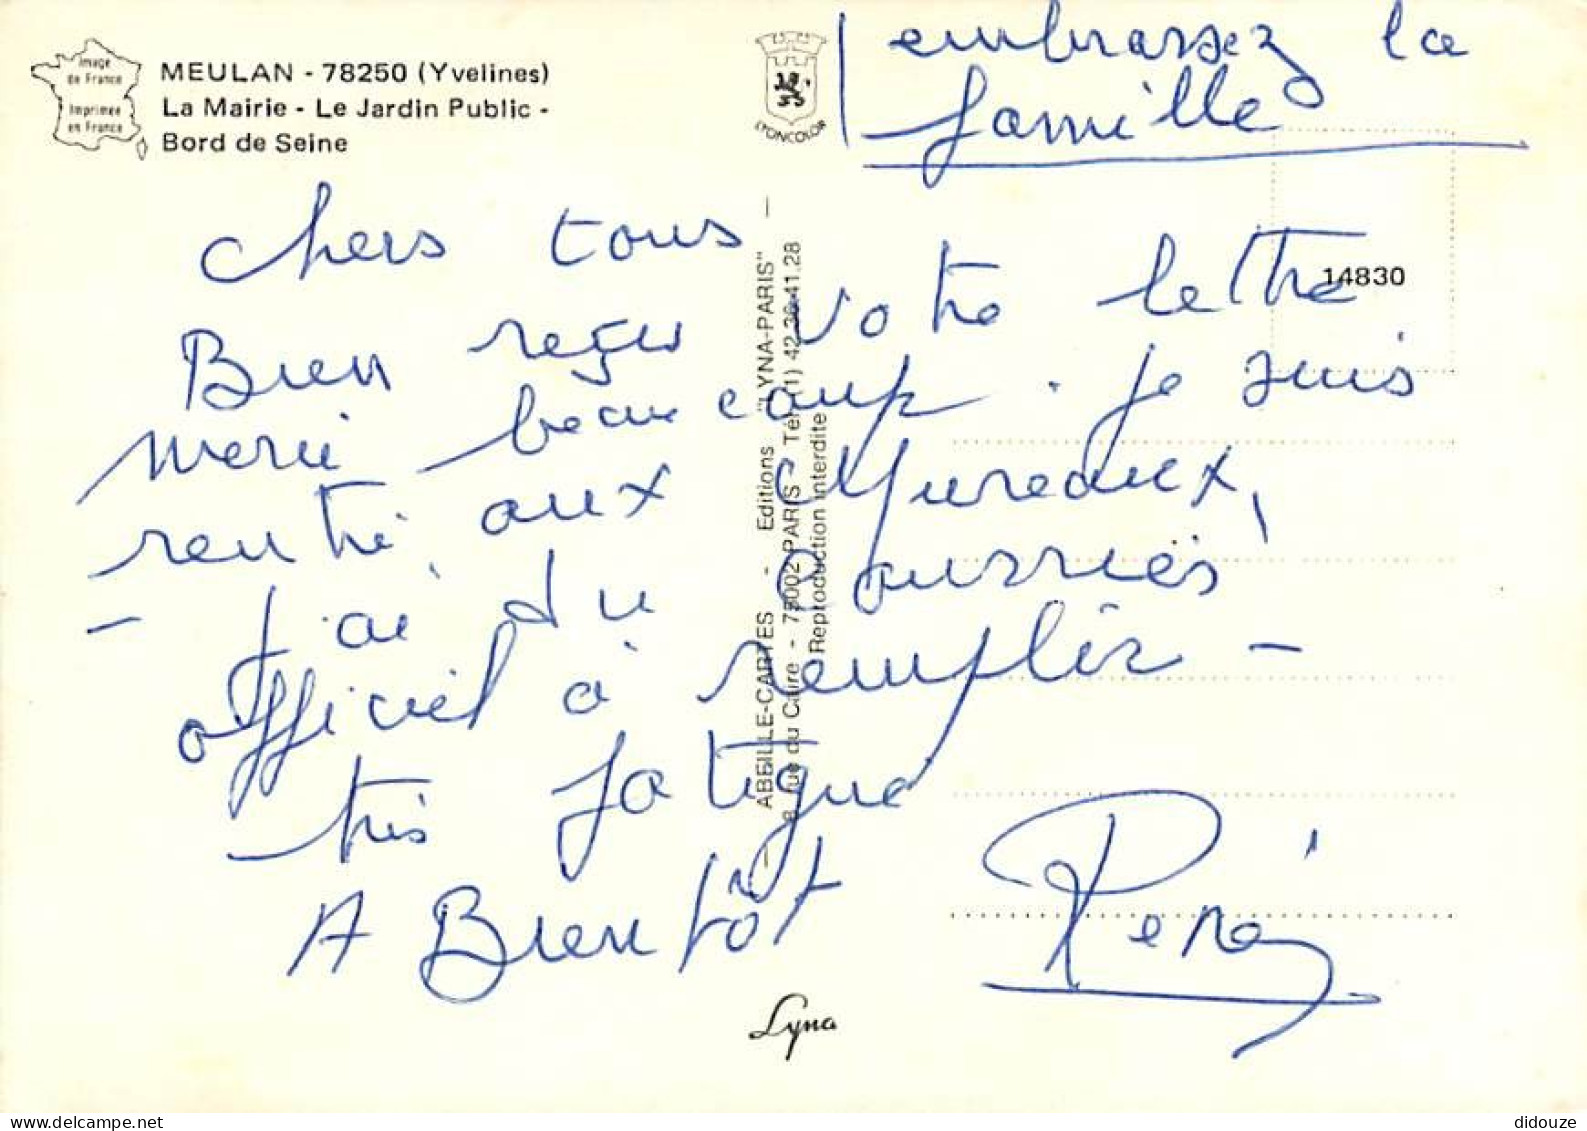 Image
de France
Imprimée
en France
MEULAN - 78250 (Yvelines)
La Mairie - Le Jardin Public -
Bord de Seine
LYONCOLOR
embrassez la
famille
14830
chers tous
Bien reçu votre lettre
merci beaucoup. je suis
rentré aux Mureaux,
- j'ai du courriers
officiel à remplir -
très fatigué
A Bientôt
René
— ABEILLE-CARTES - Editions "LYNA-PARIS" —
8, rue du Caire - 75002 PARIS - Tél. (1) 42.36.41.28
Reproduction interdite
Lyna
didouze